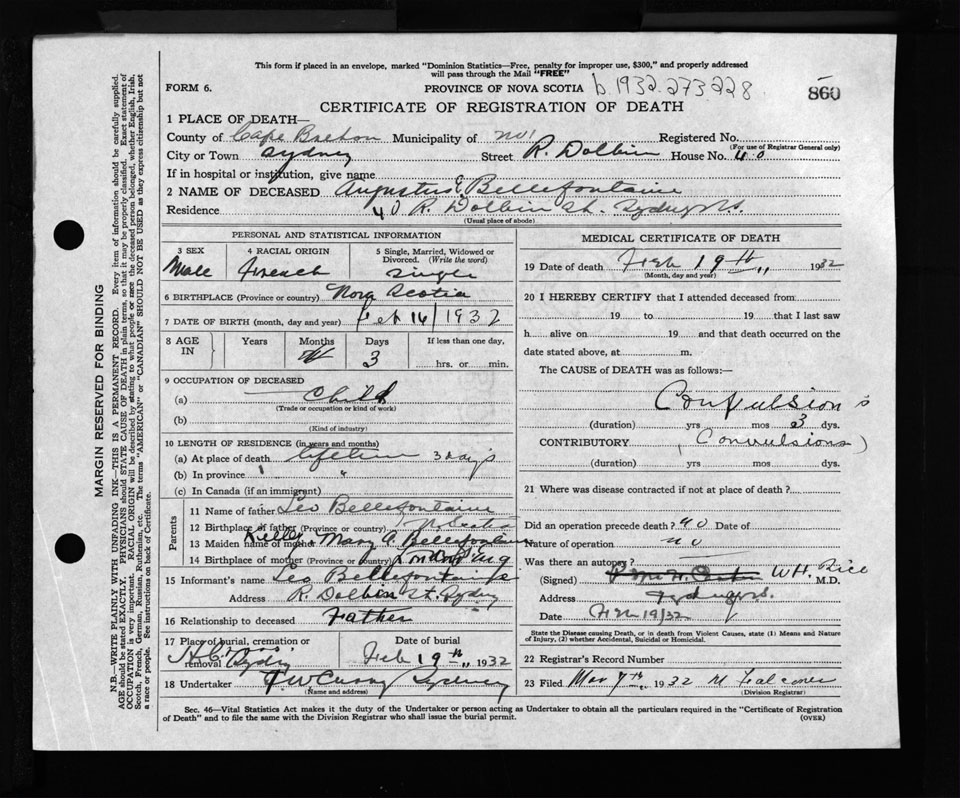 This form if placed in an envelope, marked "Dominion Statistics—Free, penalty for improper use, $300," and properly addressed
will pass through the Mail "FREE"
FORM 6.
PROVINCE OF NOVA SCOTIA b.1932.273.228
860
CERTIFICATE OF REGISTRATION OF DEATH
1 PLACE OF DEATH—
County of Cape Breton Municipality of Registered No.
(For use of Registrar General only)
City or Town Sydney Street R. Dolbin House No. 40
If in hospital or institution, give name
2 NAME OF DECEASED Augustus Bellefontaine
Residence 40 R. Dolbin St. Sydney N.S.
(Usual place of abode)
PERSONAL AND STATISTICAL INFORMATION
3 SEX
Male
4 RACIAL ORIGIN
French
5 Single, Married, Widowed or
Divorced. (Write the word)
Single
6 BIRTHPLACE (Province or country) Nova Scotia
7 DATE OF BIRTH (month, day and year) Feb 16/1932
8 AGE
IN
Years
Months
Days
3
If less than one day,
hrs. or min.
9 OCCUPATION OF DECEASED
(a) Child
(Trade or occupation or kind of work)
(b)
(Kind of industry)
10 LENGTH OF RESIDENCE (in years and months)
(a) At place of death lifetime 3 days
(b) In province " "
(c) In Canada (if an immigrant)
Parents
11 Name of father Leo Bellefontaine
12 Birthplace of father (Province or country) N. Scotia
13 Maiden name of mother Kelley Mary A. Bellefontaine
14 Birthplace of mother (Province or country) London Eng
15 Informant's name Leo Bellefontaine
Address R. Dolbin St. Sydney
16 Relationship to deceased Father
17 Place of burial, cremation or
removal Sydney
Date of burial
Feb 19th 1932
18 Undertaker Sydney
(Name and address)
MEDICAL CERTIFICATE OF DEATH
19 Date of death Feb 19th " 1932
(Month, day and year)
20 I HEREBY CERTIFY that I attended deceased from
19 to 19 that I last saw
h alive on 19 and that death occurred on the
date stated above, at m.
The CAUSE of DEATH was as follows:—
Convulsions
(duration) yrs mos 3 dys.
CONTRIBUTORY (Convulsions)
(duration) yrs mos dys.
21 Where was disease contracted if not at place of death?
Did an operation precede death? no Date of
Nature of operation no
Was there an autopsy?
(Signed) W H. Rice M.D.
Address Sydney N.S.
Date Feb 19/32
State the Disease causing Death, or in death from Violent Causes, state (1) Means and Nature
of Injury, (2) whether Accidental, Suicidal or Homicidal.
22 Registrar's Record Number
23 Filed Mar 7th 1932 M Falconer
(Division Registrar)
Sec. 46—Vital Statistics Act makes it the duty of the Undertaker or person acting as Undertaker to obtain all the particulars required in the "Certificate of Registration
of Death" and to file the same with the Division Registrar who shall issue the burial permit.
(OVER)
MARGIN RESERVED FOR BINDING
N.B.—WRITE PLAINLY WITH UNFADING INK—THIS IS A PERMANENT RECORD. Every item of information should be carefully supplied.
AGE should be stated EXACTLY. PHYSICIANS should STATE CAUSE OF DEATH in plain terms, so that it may be properly classified. Exact statement of
OCCUPATION is very important. RACIAL ORIGIN will be described by stating to what people or race the deceased person belonged, whether English, Irish,
Scotch, French, German, Russian, Ruthenian, etc. The terms "AMERICAN" or "CANADIAN" SHOULD NOT BE USED as they express citizenship but not
a race or people. See instructions on back of Certificate.